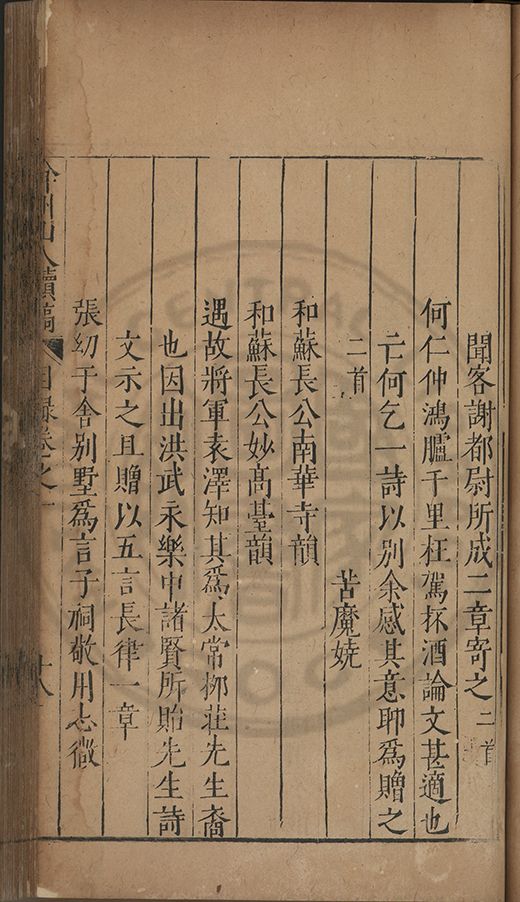 聞客謝都尉所成二章寄之二首
何仁仲鴻臚千里枉駕杯酒論文甚適也
亡何乞一詩以別余感其意聊爲贈之
二首 苦魔嬈
和蘇長公南華寺韻
和蘇長公妙高臺韻
遇故將軍袁澤知其爲太常柳莊先生裔
也因出洪武永樂中諸賢所貽先生詩
文示之且贈以五言長律一章
張幼于舍別墅爲言子祠敬用志徵
弇州山人續稿 目錄卷之一 廿八